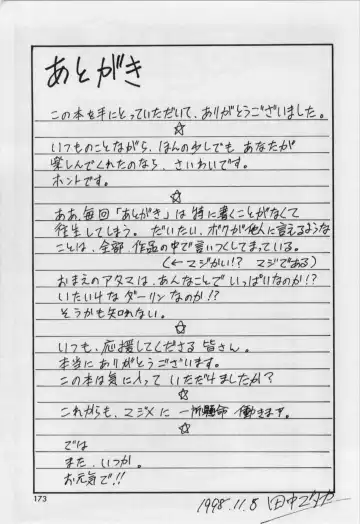 あとがき
この本を手にとっていただいて、ありがとうございました。
☆
いつものことながら、ほんの少しでも あなたが
楽しんでくれたのなら、さいわいです。
ホントです。
☆
ああ、毎回「あとがき」は特に書くことがなくて
往生してしまう。だいたい、ボクが他人に言えるような
ことは、全部、作品の中で言いつくしてまっている。
(←マジかい!? マジである)
おまえのアタマは、あんなことでいっぱいなのか!?
いたいけなダーリンなのか!?
そうかも知れない。
☆
いつも、応援してくださる皆さん。
本当にありがとうございます。
この本は気に入っていただけましたか?
☆
これからも、マジメに一所懸命 働きます。
☆
では
また、いつか。
お元気で!!
173
1998.11.5